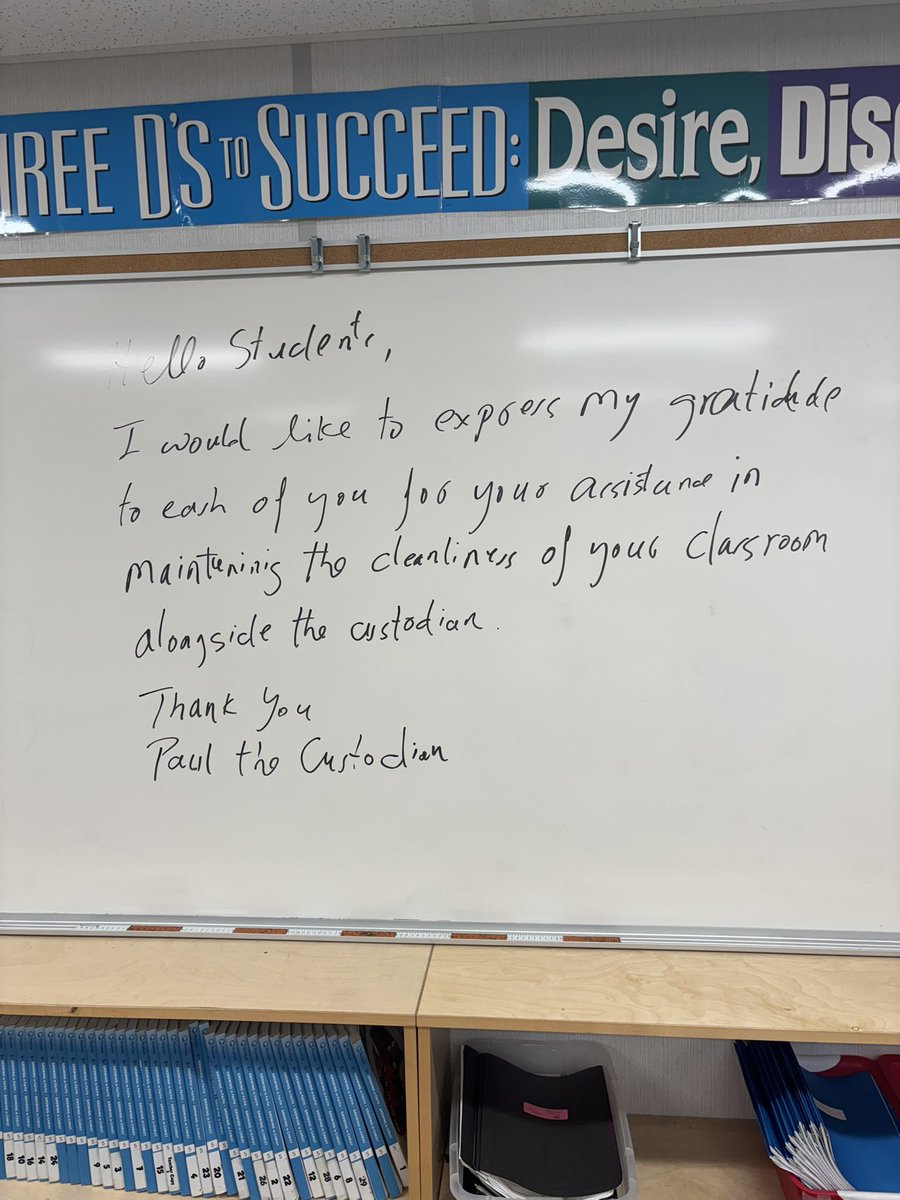 HREE D'S TO SUCCEED: Desire, Disc
Hello Students,
I would like to express my gratidude
to each of you for your assistance in
maintaining the cleanliness of your classroom
alongside the custodian.
Thank You
Paul the Custodian
18 10 16 14 24 9 5 3 7 15 4 23 20 21 26 2 22 12 28 6 8 29 1